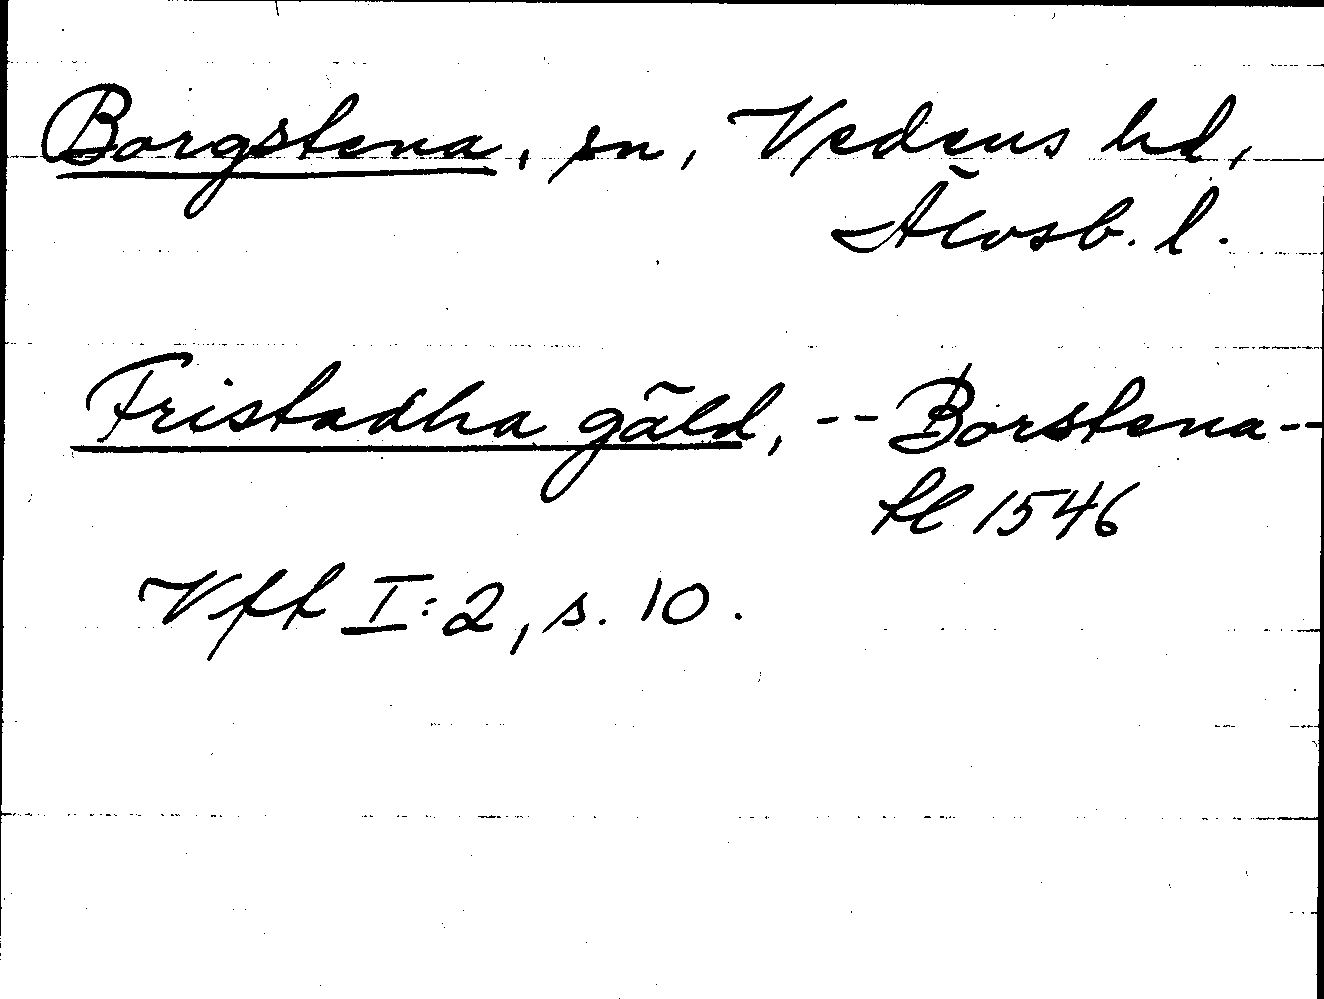 Borgstena, sn, Vedens hd,
Älvsb. l.
Fristadha gäld, -- Borstena --
fl 1546
Vff I:2, s. 10.